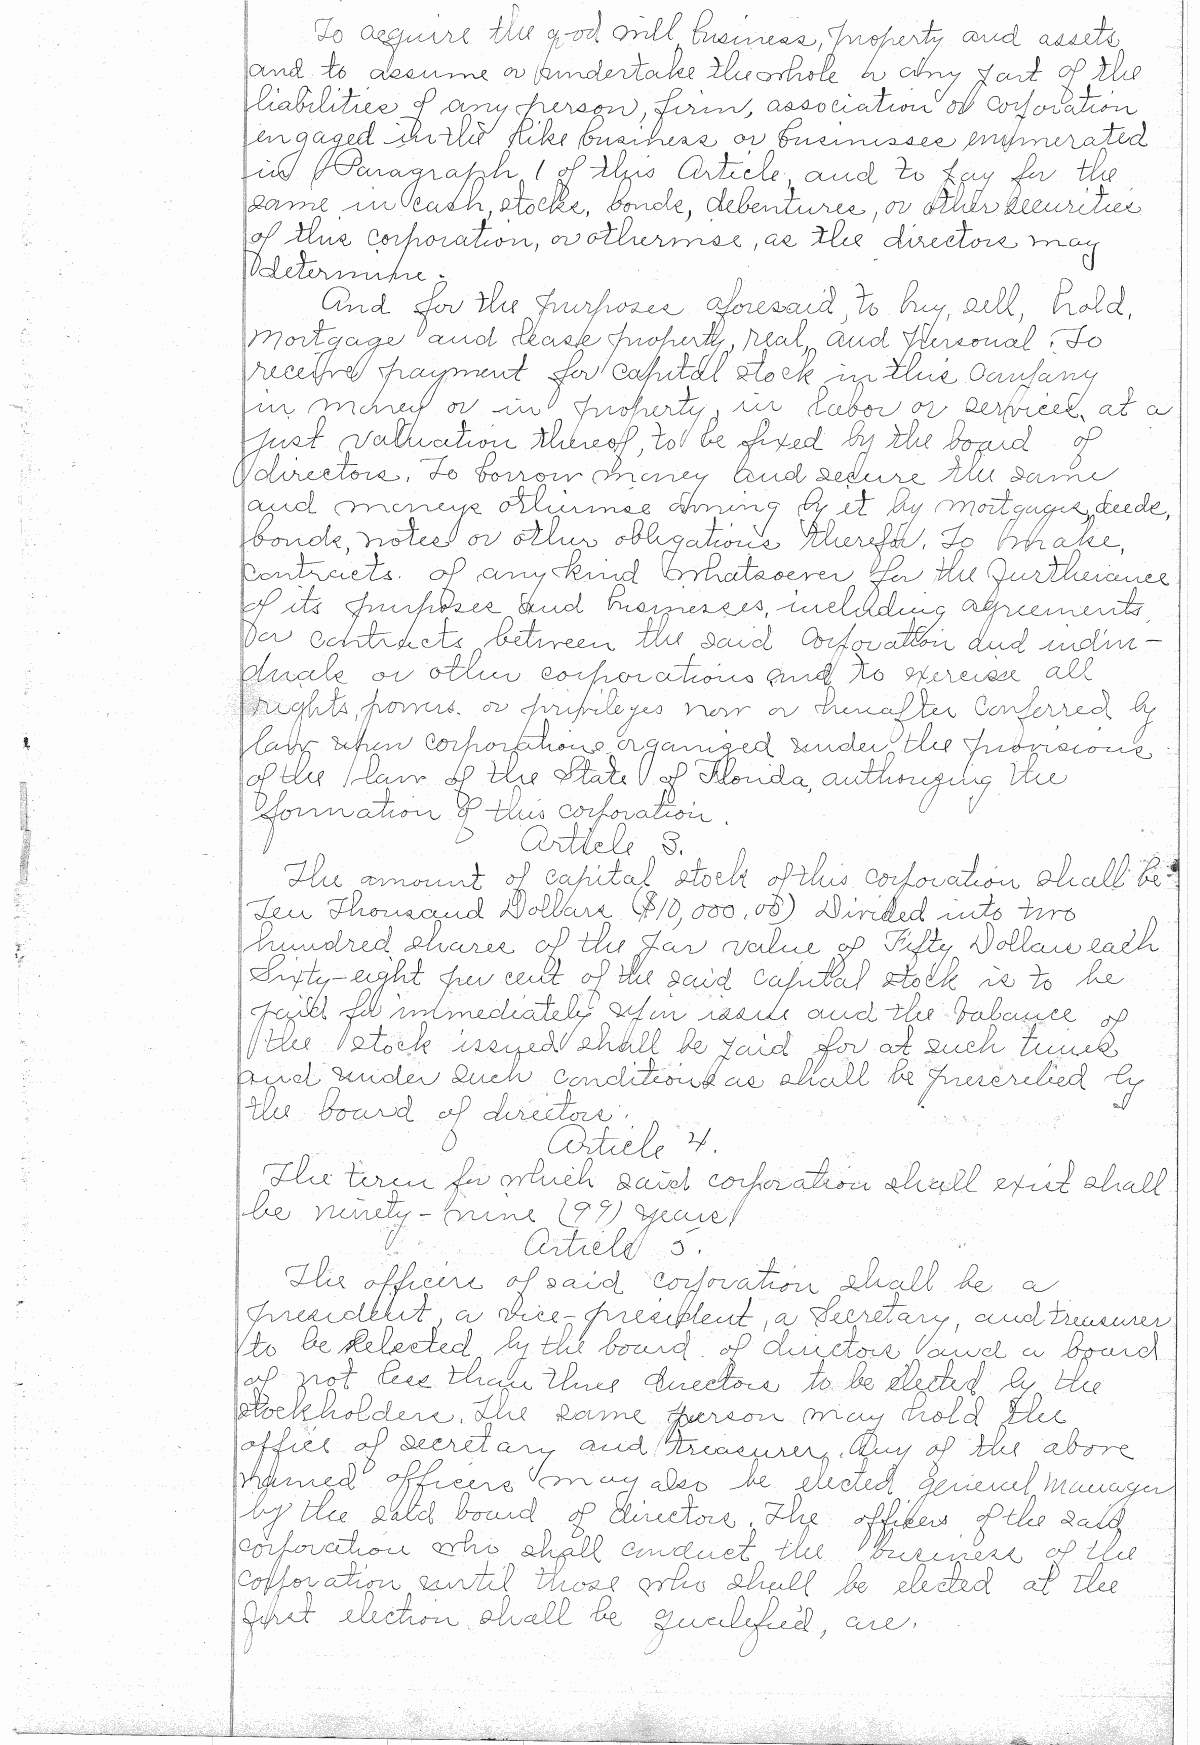 To acquire the good will, business, property and assets
and to assume or undertake the whole or any part of the
liabilities of any person, firm, association or corporation
engaged in the like business or businesses enumerated
in Paragraph 1 of this Article, and to pay for the
same in cash, stocks, bonds, debentures, or other securities
of this corporation, or otherwise, as the directors may
determine.
And for the purposes aforesaid, to buy, sell, hold,
mortgage and lease property, real, and personal. To
receive payment for capital stock in this Company
in money or in property, in labor or services, at a
just valuation thereof, to be fixed by the board of
directors. To borrow money and secure the same
and moneys otherwise owning by it by mortgages, deeds,
bonds, notes or other obligations therefor. To make,
contracts. of any kind whatsoever for the furtherance
of its purposes and businesses, including agreements,
or contracts between the said Corporation and indivi-
duals or other corporations and to exercise all
rights, powers. or privileges now or hereafter conferred by
law upon corporations organized under the provisions
of the law of the State of Florida, authorizing the
formation of this corporation.
Article 3.
The amount of capital stock of this corporation shall be
Ten Thousand Dollars ($10,000.00) Divided into two
hundred shares of the par value of Fifty Dollars each
Sixty-eight per cent of the said capital stock is to be
paid for immediately upon issue and the balance of
the stock issued shall be paid for at such times
and under such conditions as shall be prescribed by
the board of directors.
Article 4.
The term for which said corporation shall exist shall
be ninety-nine (99) years
Article 5.
The officers of said corporation shall be a
president, a vice-president, a Secretary, and treasurer
to be selected by the board of directors and a board
of not less than three directors to be elected by the
stockholders. The same person may hold the
office of secretary and treasurer. Any of the above
named officers may also be elected general Manager
by the said board of directors. The officers of the said
corporation who shall conduct the business of the
corporation until those who shall be elected at the
first election shall be qualified, are.